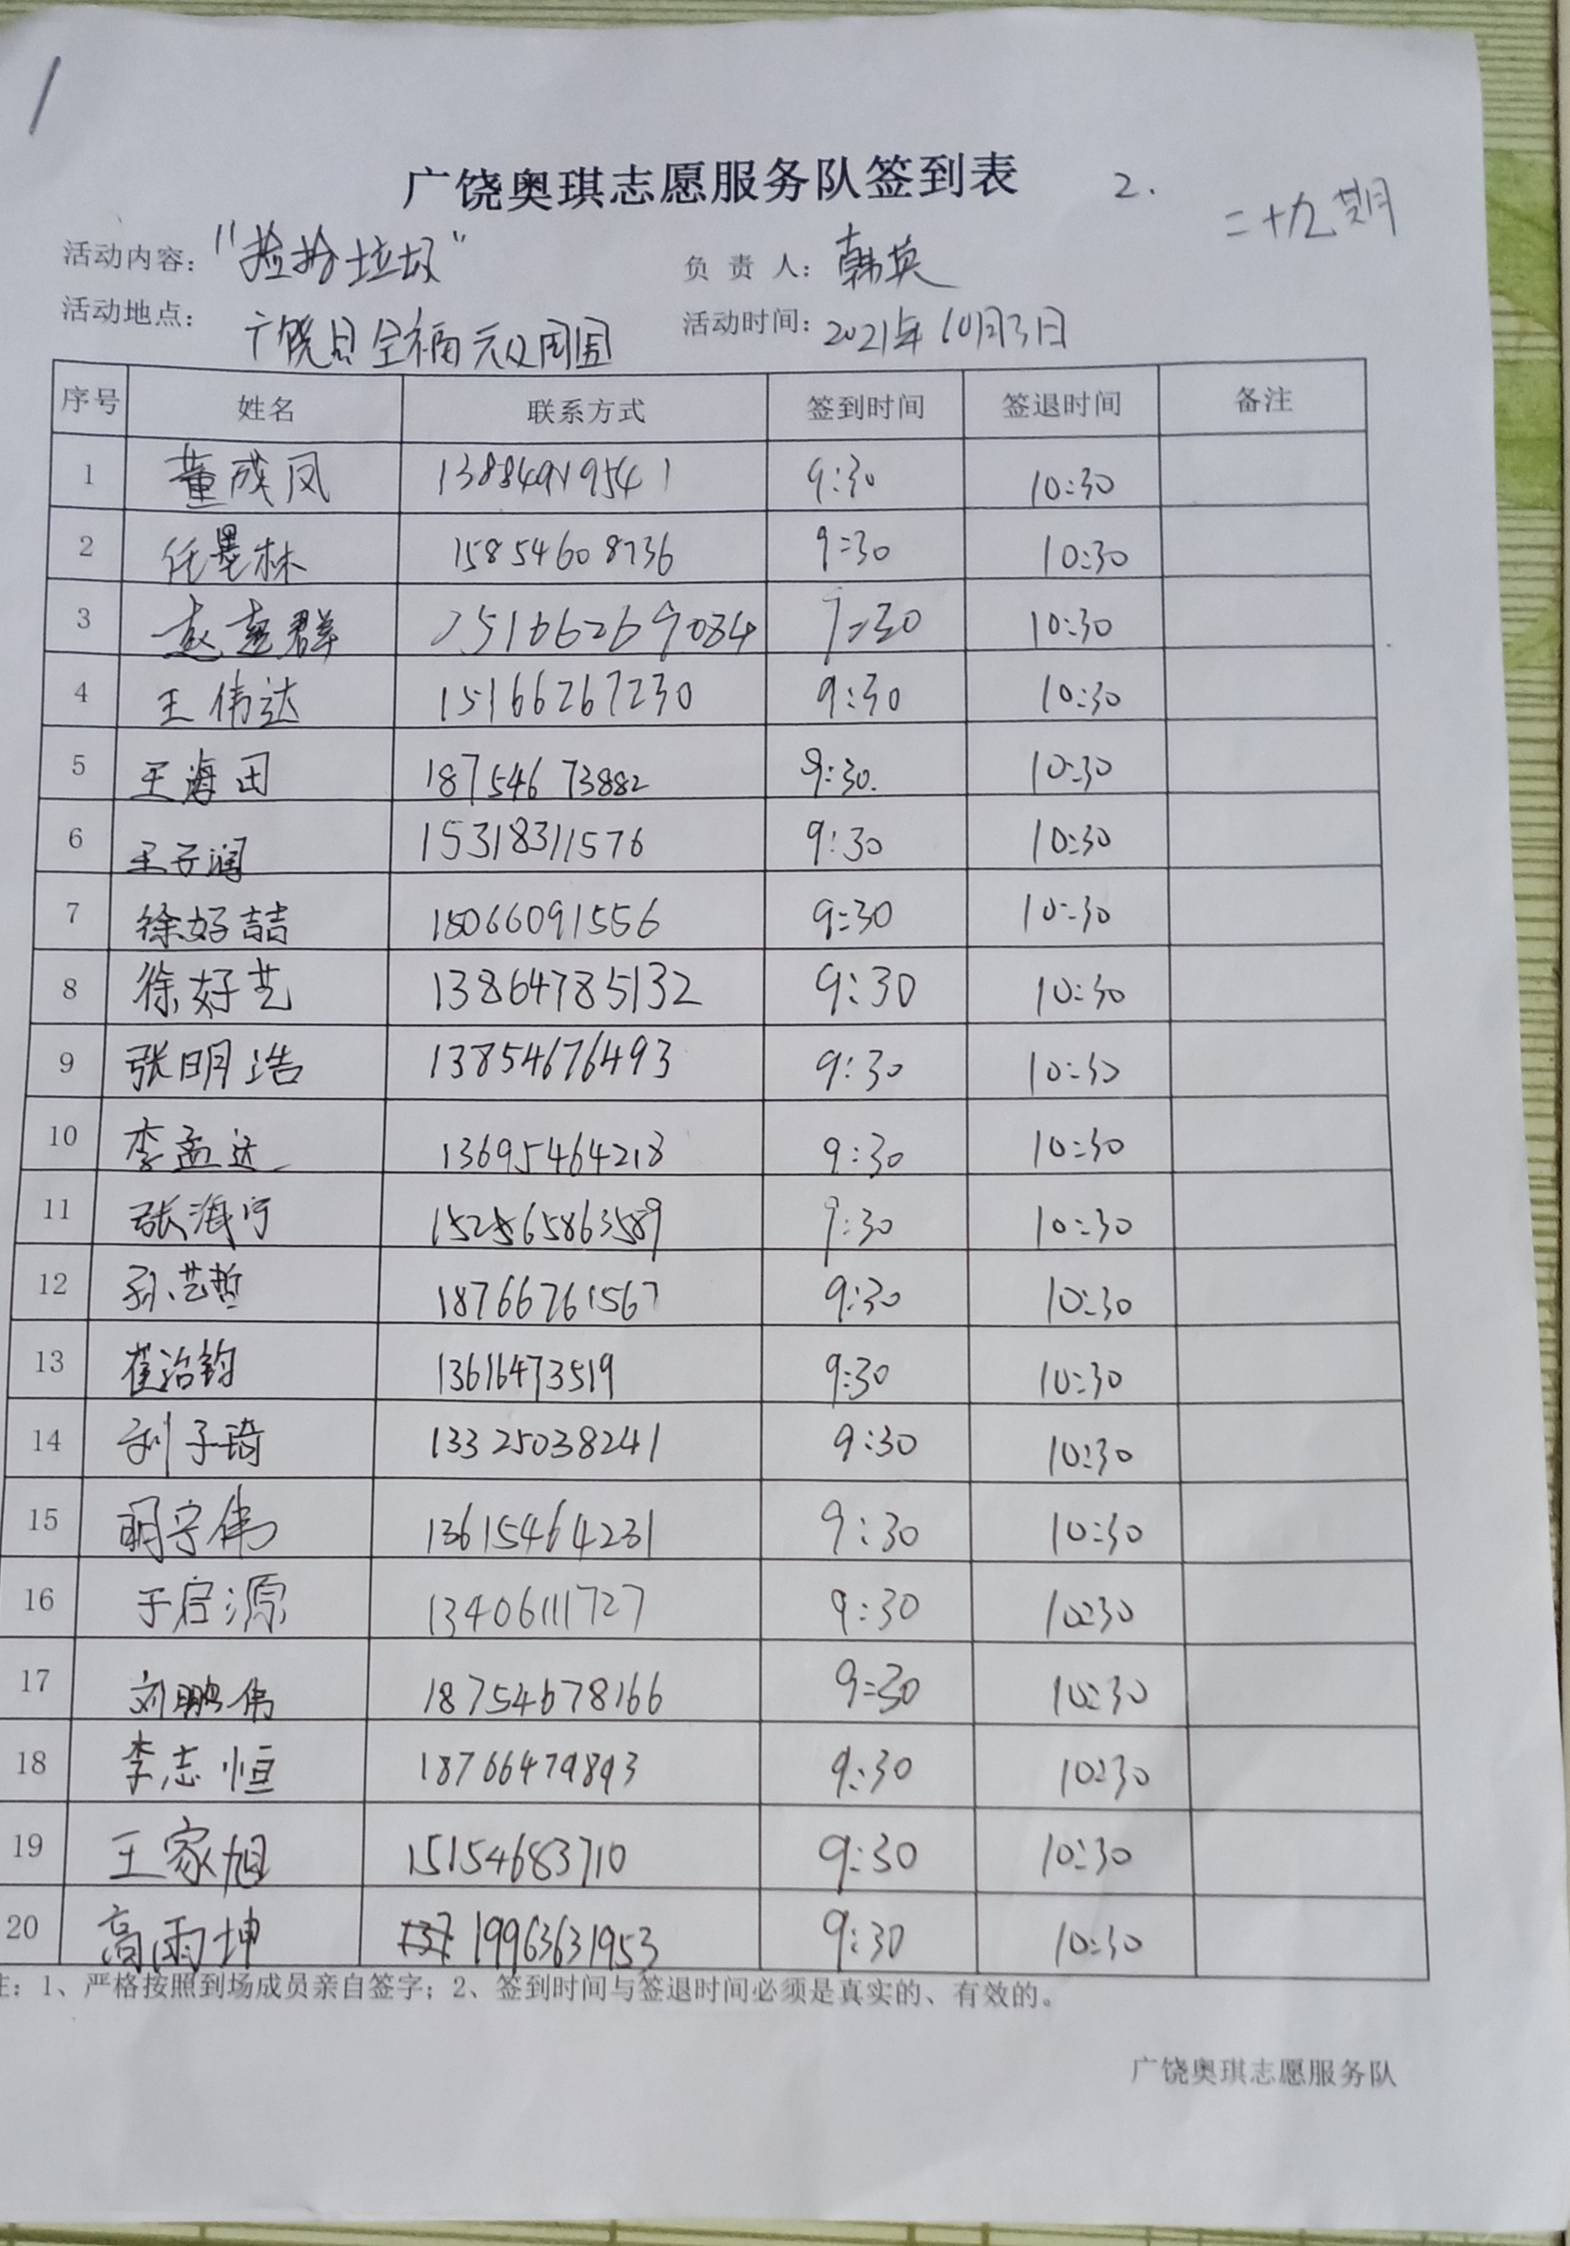 广饶奥琪志愿服务队签到表 2.
二十九期
活动内容："捡拾垃圾" 负责人：韩英
活动地点：广饶县全福元及周围 活动时间：2021年10月3日
序号 姓名 联系方式 签到时间 签退时间 备注
1 董成凤 13884919541 9:30 10:30
2 任墨林 15854608736 9:30 10:30
3 群 9:30 10:30
4 王伟达 15166267230 9:30 10:30
5 王海田 18754673882 9:30. 10:30
6 王子润 15318311576 9:30 10:30
7 徐好喆 18066091556 9:30 10:30
8 徐好艺 13864785132 9:30 10:30
9 张明浩 13854676493 9:30 10:30
10 李孟达 13695464218 9:30 10:30
11 张海宁 9:30 10:30
12 孙艺哲 18766761567 9:30 10:30
13 崔治钧 13616473519 9:30 10:30
14 刘子琦 13325038241 9:30 10:30
15 明宇伟 13615464231 9:30 10:30
16 于启源 13406111727 9:30 10:30
17 刘鹏伟 18754678166 9:30 10:30
18 李志恒 18766479893 9:30 10:30
19 王家旭 15154683710 9:30 10:30
20 高雨坤 19963631953 9:30 10:30
注：1、严格按照到场成员亲自签字；2、签到时间与签退时间必须是真实的、有效的。
广饶奥琪志愿服务队